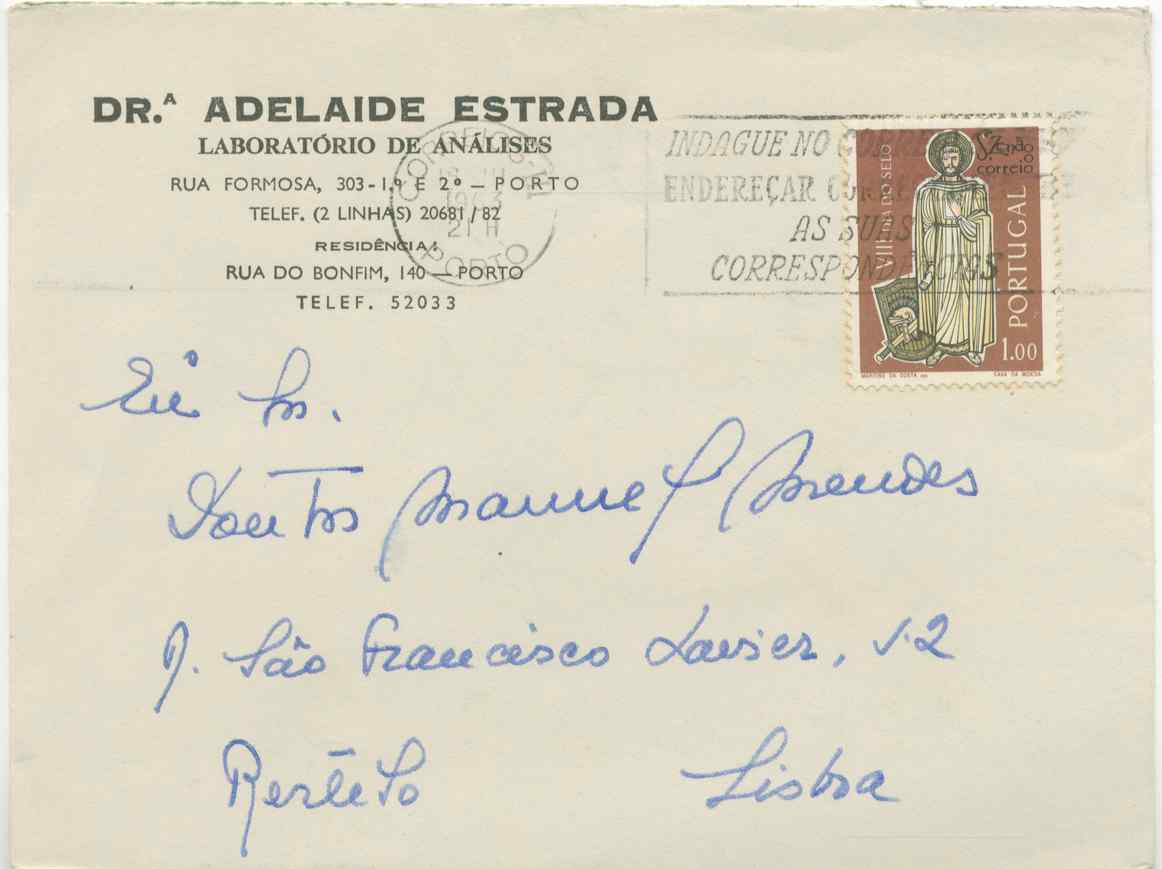 DR.ª ADELAIDE ESTRADA
LABORATÓRIO DE ANÁLISES
RUA FORMOSA, 303-1.º E 2º — PORTO
TELEF. (2 LINHAS) 20681/82
RESIDÊNCIA:
RUA DO BONFIM, 140 — PORTO
TELEF. 52033
CORREIOS
21 H
PORTO
INDAGUE NO
ENDEREÇAR
AS SUAS
CORRESPONDÊNCIAS
VIII DIA DO SELO
S. Zenão
o correio
PORTUGAL
1.00
MARTINS DA COSTA
CASA DA MOEDA
Sr.
Manuel Mendes
São Francisco Xavier, 12
Restelo Lisboa